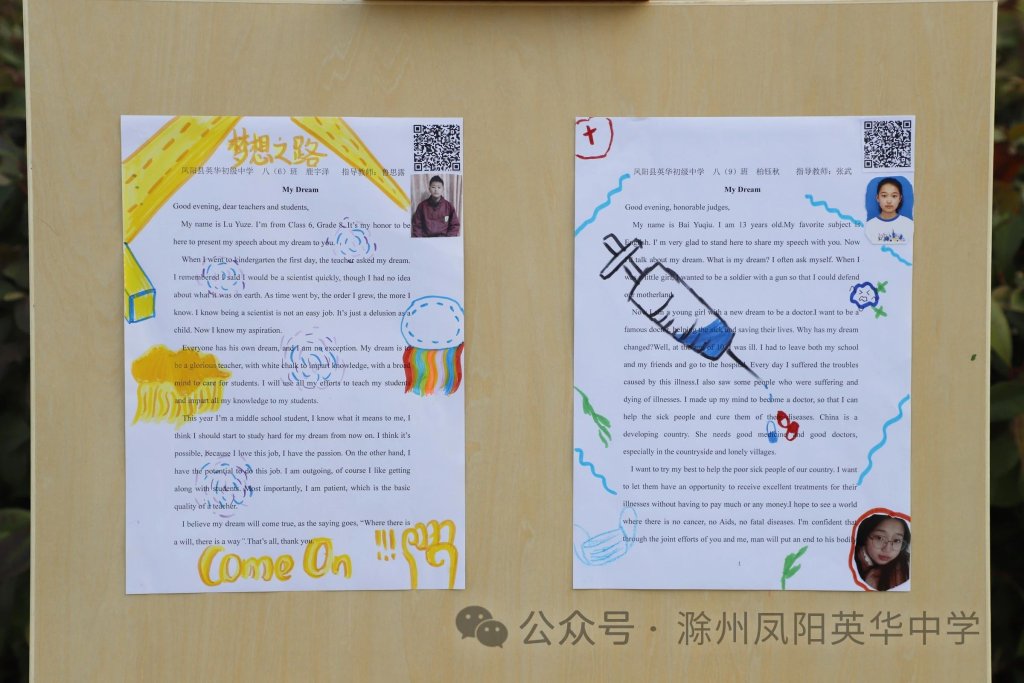 梦想之路
凤阳县英华初级中学 八（6）班 鹿宇泽 指导教师：鲁思露
My Dream
Good evening, dear teachers and students,
My name is Lu Yuze. I'm from Class 6, Grade 8. It's my honor to be
here to present my speech about my dream to you.
When I went to kindergarten the first day, the teacher asked my dream.
I remembered I said I would be a scientist quickly, though I had no idea
about what it was on earth. As time went by, the order I grew, the more I
know. I know being a scientist is not an easy job. It's just a delusion as a
child. Now I know my aspiration.
Everyone has his own dream, and I am no exception. My dream is to
be a glorious teacher, with white chalk to impart knowledge, with a broad
mind to care for students. I will use all my efforts to teach my students
and impart all my knowledge to my students.
This year I'm a middle school student, I know what it means to me, I
think I should start to study hard for my dream from now on. I think it's
possible, because I love this job, I have the passion. On the other hand, I
have the potential to do this job. I am outgoing, of course I like getting
along with students. Most importantly, I am patient, which is the basic
quality of a teacher.
I believe my dream will come true, as the saying goes, “Where there is
a will, there is a way”.That's all, thank you.
Come On !!!
凤阳县英华初级中学 八（9）班 柏钰秋 指导教师：张武
My Dream
Good evening, honorable judges,
My name is Bai Yuqiu. I am 13 years old.My favorite subject is
English. I' m very glad to stand here to share my speech with you. Now
talk about my dream. What is my dream? I often ask myself. When I
was little girl, I wanted to be a soldier with a gun so that I could defend
our motherland.
Now I am a young girl with a new dream to be a doctor.I want to be a
famous doctor, helping the sick and saving their lives. Why has my dream
changed?Well, at the age of 10, I was ill. I had to leave both my school
and my friends and go to the hospital. Every day I suffered the troubles
caused by this illness.I also saw some people who were suffering and
dying of illnesses. I made up my mind to become a doctor, so that I can
help the sick people and cure them of the diseases. China is a
developing country. She needs good medicine and good doctors,
especially in the countryside and lonely villages.
I want to try my best to help the poor sick people of our country. I want
to let them have an opportunity to receive excellent treatments for their
illnesses without having to pay much or any money.I hope to see a world
where there is no cancer, no Aids, no fatal diseases. I'm confident that
through the joint efforts of you and me, man will put an end to his bodily
1
公众号 · 滁州凤阳英华中学